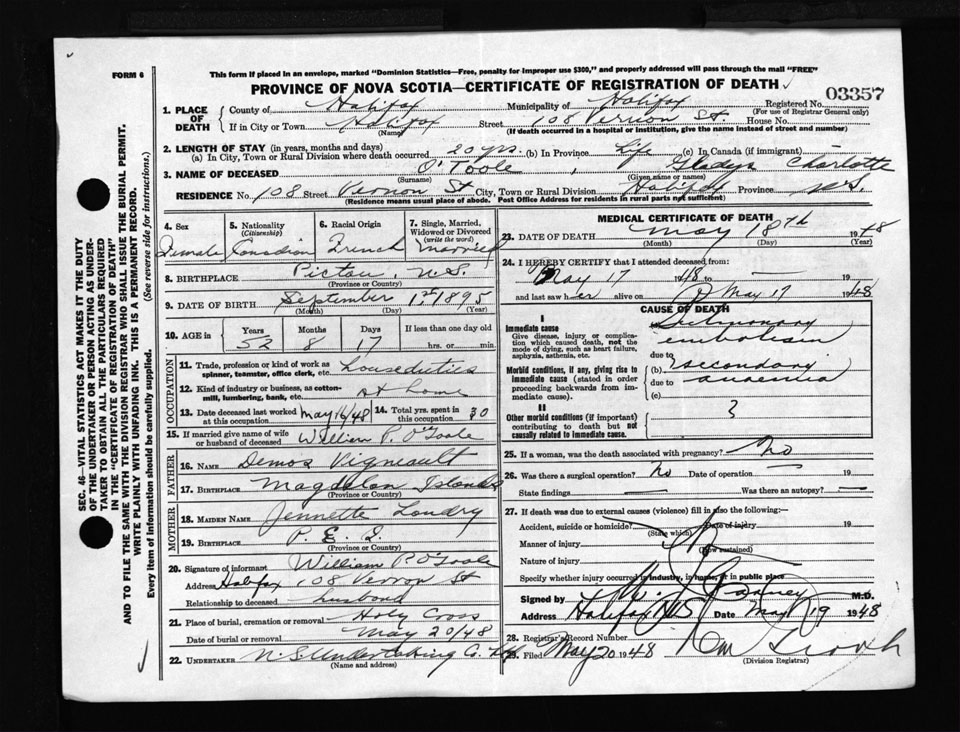 FORM 6
This form if placed in an envelope, marked "Dominion Statistics—Free, penalty for improper use $300," and properly addressed will pass through the mail "FREE"
PROVINCE OF NOVA SCOTIA—CERTIFICATE OF REGISTRATION OF DEATH
03357
1. PLACE OF DEATH
County of Halifax Municipality of Halifax Registered No.
(For use of Registrar General only)
If in City or Town Halifax Street 108 Vernon St. House No.
(Name) (If death occurred in a hospital or institution, give the name instead of street and number)
2. LENGTH OF STAY (in years, months and days)
(a) In City, Town or Rural Division where death occurred 20 yrs. (b) In Province Life (c) In Canada (if immigrant)
3. NAME OF DECEASED O'Toole, Gladys Charlotte
(Surname) (Given name or names)
RESIDENCE No. 108 Street Vernon St City, Town or Rural Division Halifax Province N.S.
(Residence means usual place of abode. Post Office Address for residents in rural parts not sufficient)
SEC. 46—VITAL STATISTICS ACT MAKES IT THE DUTY
OF THE UNDERTAKER OR PERSON ACTING AS UNDER-
TAKER TO OBTAIN ALL THE PARTICULARS REQUIRED
IN THE "CERTIFICATE OF REGISTRATION OF DEATH"
AND TO FILE THE SAME WITH THE DIVISION REGISTRAR WHO SHALL ISSUE THE BURIAL PERMIT.
WRITE PLAINLY WITH UNFADING INK. THIS IS A PERMANENT RECORD.
Every item of information should be carefully supplied. (See reverse side for instructions.)
4. Sex
Female
5. Nationality
(Citizenship)
Canadian
6. Racial Origin
French
7. Single, Married, Widowed or Divorced
(write the word)
Married
8. BIRTHPLACE Pictou, N.S.
(Province or Country)
9. DATE OF BIRTH September 1st 1895
(Month) (Day) (Year)
10. AGE in
Years Months Days If less than one day old
52 8 17 hrs. or min.
OCCUPATION
11. Trade, profession or kind of work as spinner, teamster, office clerk, etc. Houseduties
12. Kind of industry or business, as cotton-mill, lumbering, bank, etc. at home
13. Date deceased last worked at this occupation May 16/48 14. Total yrs. spent in this occupation 30
15. If married give name of wife or husband of deceased William P. O'Toole
FATHER
16. NAME Demos Vigneault
17. BIRTHPLACE Magdalan Islands
(Province or Country)
MOTHER
18. MAIDEN NAME Jennette Landry
19. BIRTHPLACE P.E.I.
(Province or Country)
20. Signature of informant William P. O'Toole
Address Halifax 108 Vernon St
Relationship to deceased husband
21. Place of burial, cremation or removal Holy Cross
Date of burial or removal May 20/48
22. UNDERTAKER N.S. Undertaking Co.
(Name and address)
MEDICAL CERTIFICATE OF DEATH
23. DATE OF DEATH May 18th 1948
(Month) (Day) (Year)
24. I HEREBY CERTIFY that I attended deceased from:
May 17 1948 to — 19
and last saw her alive on May 17 1948
CAUSE OF DEATH
I
Immediate cause
Give disease, injury or complication which caused death, not the mode of dying, such as heart failure, asphyxia, asthenia, etc.
Pulmonary embolism
due to
Morbid conditions, if any, giving rise to immediate cause (stated in order proceeding backwards from immediate cause).
(b) secondary
due to anaemia
(c)
II
Other morbid conditions (if important) contributing to death but not causally related to immediate cause.
25. If a woman, was the death associated with pregnancy? No
26. Was there a surgical operation? No Date of operation — 19
State findings — Was there an autopsy? —
27. If death was due to external causes (violence) fill in also the following:—
Accident, suicide or homicide? Date of injury 19
(State which)
Manner of injury
(How sustained)
Nature of injury
Specify whether injury occurred in industry, in home, or in public place
Signed by M.D.
Address Halifax N.S Date May 19 1948
28. Registrar's Record Number
29. Filed May 20 1948
(Division Registrar)